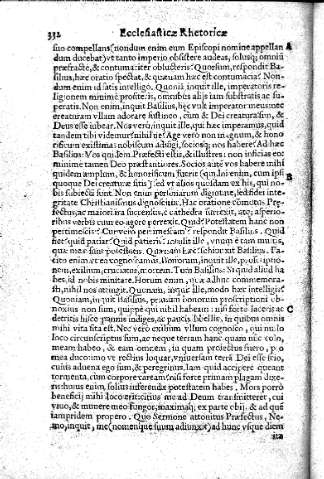 332 Ecclesiasticæ Rhetoricæ
suo compellans, nondum enim eum Episcopi nomine appellan A
dum ducebat) vt tanto imperio obsistere audeas, solusq; omnium
præfractè, & contumaciter obluctéris? Quo sum, respondit Ba-
silius, hæc oratio spectat, & quænam hæc est contumacia? Non-
dum enim id satis intelligo. Quoniã, inquit ille, imperatoris re-
ligionem minimè profiteris, omnibus alijs iam substratis ac su-
peratis. Non enim, inquit Basilius, hęc vult imperator meus: nec
creaturam vllam adorare sustineo, cum & Dei creatura sim, &
Deus esse iubear. Nos verò, inquit ille, qui hæc imperamus, quid
tandem tibi videmur? nihilne? Age verò non magnum, & hono
rificum existimas nobiscum adiungi, sociosq; nos habere? Ad hæc
Basilius: Vos quidem Præfecti estis, & illustres: non inficias eo:
minimè tamen Deo præstantiores. Socios autē vos habere mihi
quidem amplum, & honorificum fuerit (quidni enim, cum ipsi
quoque Dei creaturæ sitis) sed vt alios quosdam ex his, qui no- B
bis subiecti sunt. Non enim personarum dignitate, sed fidei inte-
gritate Christianismus dignoscitur. Hac oratione commotus Præ-
fectus, ac maiori ira succensus, è cathedra surrexit, atq; asperio-
ribus verbis cum eo agere cœpit. Quid? Potestatem hanc non
pertimescis? Cur verò pertimescam? respondit Basilius. Quid
fiet? quid patiar? Quid patieris? retulit ille, vnum è tam multis,
quæ meæ sunt potestatis. Quænam hæc? subiunxit Basilius. Fa-
cito enim, et ea cognoscamus. Bonorum, inquit ille, proscriptio-
nem, exilium, cruciatus, mortem. Tum Basilius: Si quid aliud ha
bes, id nobis minitare. Horum enim, quæ adhuc commemora-
sti, nihil nos attingit. Quonam, inquit ille, modo hæc intelligis?
Quoniam, inquit Basilius, primum bonorum proscriptioni ob-
noxius non sum, quippe qui nihil habeam: nisi fortè laceris ac C
detritis hisce pannis indiges, ac paucis libellis, in quibus omnis
mihi vita sita est. Nec verò exilium vllum cognosco, qui nullo
loco circunscriptus sum, ac neque terram hanc quam nũc colo,
meam habeo, & eam omnem, in quam proiectus fuero, pro
mea duco: imo vt rectiùs loquar, vniuersam terrã Dei esse scio,
cuius aduena ego sum, & peregrinus. Iam quid accipere queant
tormenta, cum corpore caream? nisi fortè primam plagam dixe-
ris: huius enim, solius inferendæ potestatem habes. Mors porrò
beneficij mihi loco erit: citiùs me ad Deum transmitteret, cui
viuo, & munere meo fungor, maximaq; ex parte obij, & ad quē
iampridem propero. Quo Sermone attonitus Præfectus, Ne-
mo, inquit, me (nomenque suum adiunxit) ad hunc vsque diem